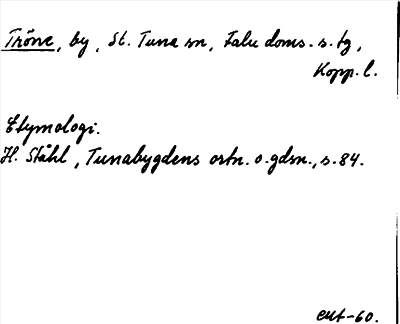 Tröne, by, St. Tuna sn, Falu doms. s. tg,
Kopp. l.
Etymologi.
H. Ståhl, Tunabygdens ortn. o. gdsn., s. 84.
EHt-60.